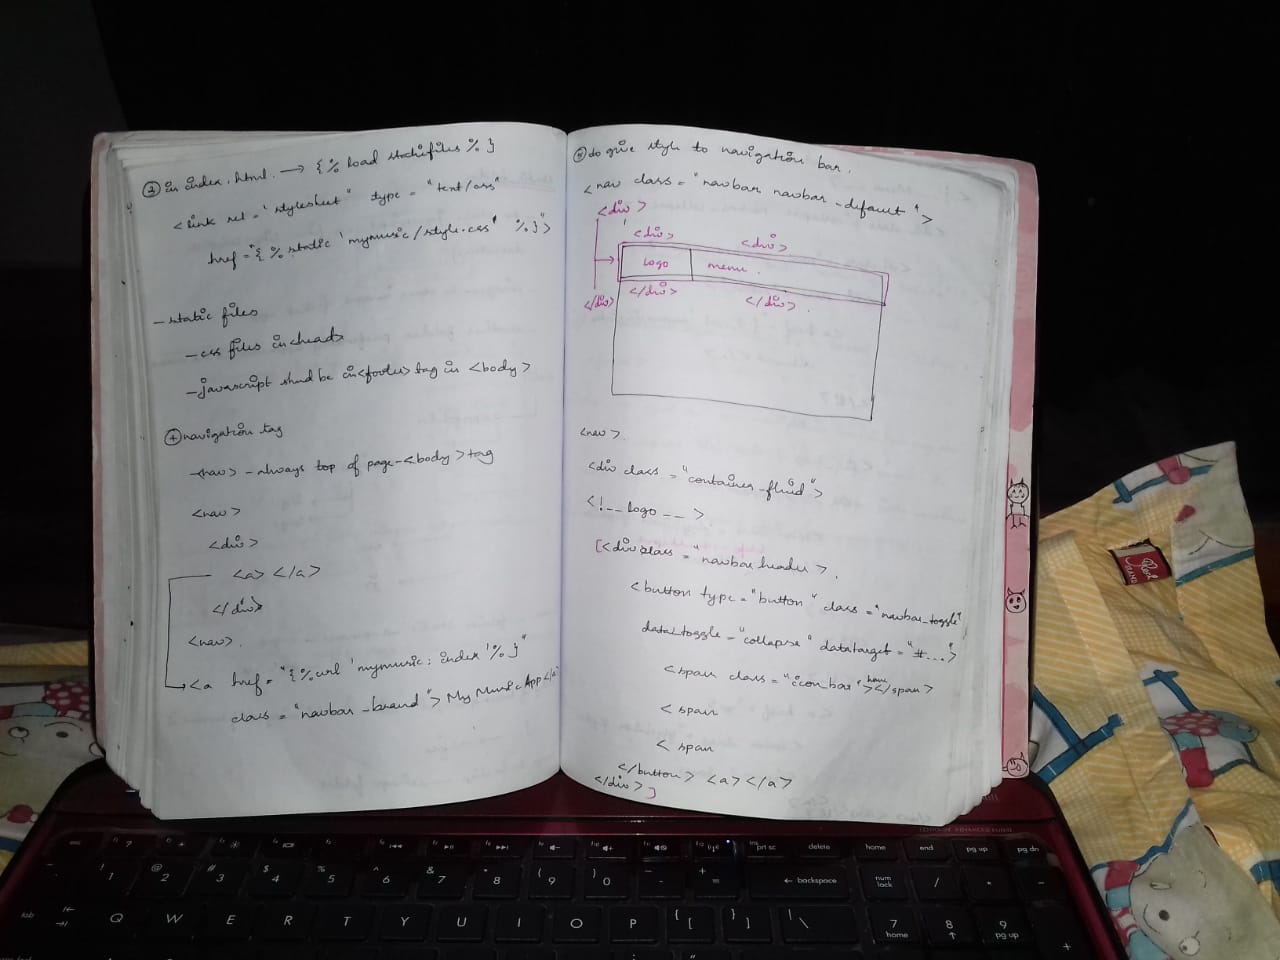 ③ in index.html. → {% load staticfiles %}
<link rel = 'stylesheet" type = "text/css"
href = "{% static 'mymusic/style.css' %}">
- static files
- css files in heads
- javascript shud be in <footer> tag in <body>
④ navigation tag
<nav> - always top of page - <body> tag
<nav>
<div>
<a> </a>
</div>
<nav>
<a href = "{% url 'mymusic: index' %}"
class = "navbar-brand"> My Music App </a>
⑤ do give style to navigation bar.
<nav class = "navbar navbar-default">
<div>
<div> <div>
Logo menu.
</div> </div> </div>
<nav>.
<div class = "container-fluid">
<!-- Logo -->
[<div class = "navbar header>.
<button type = "button" class = "navbar_toggle"
data_toggle = "collapse" datatarget = "#...>
<span class = "icon_bar"> home </span>
<span
<span
</button> <a></a>
</div> ]
esc f1 ? f2 f3 f4 f5 f6 f7 f8 f9 f10 f11 f12 prt sc delete home end pg up pg dn
! 1 @ 2 # 3 $ 4 % 5 ^ 6 & 7 * 8 ( 9 ) 0 - + = ← backspace num lock / * -
tab Q W E R T Y U I O P { [ } ] | \ 7 home 8 ↑ 9 pg up +